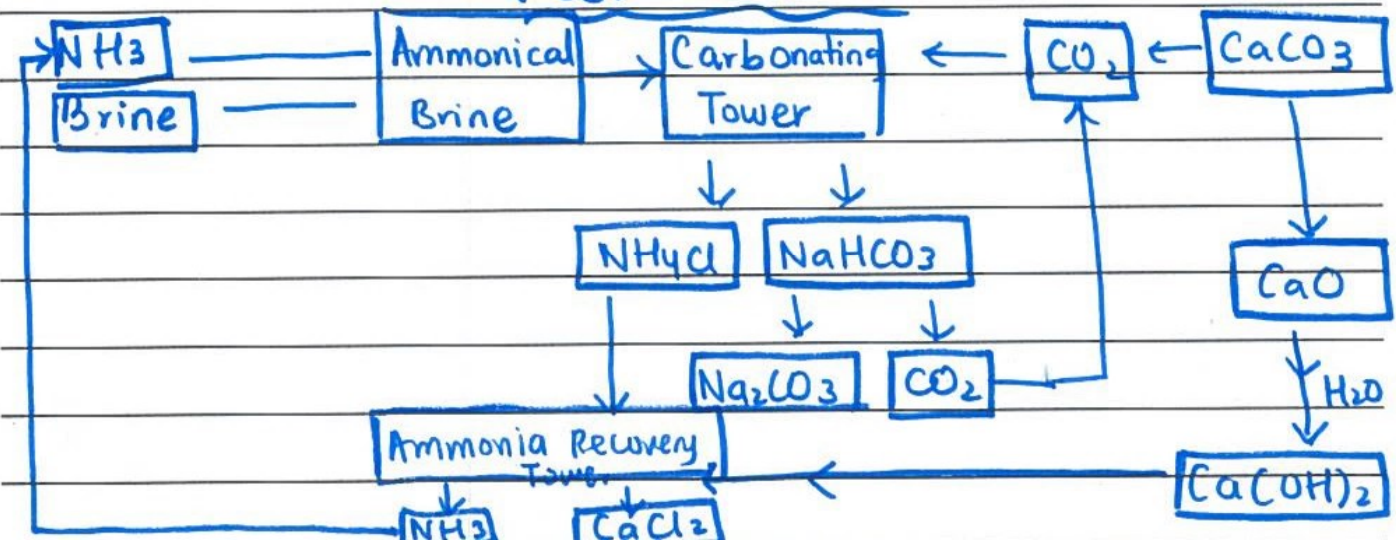 NH3
Brine
Ammonical
Brine
Carbonating
Tower
CO2
CaCO3
NH4Cl
NaHCO3
CaO
Na2CO3
CO2
H2O
Ammonia Recovery
Tower
Ca(OH)2
NH3
CaCl2